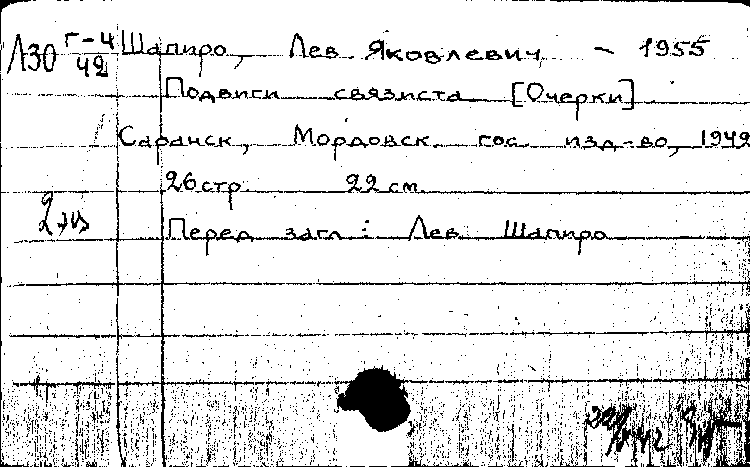 Л30 Г-4/42
Шапиро, Лев Яковлевич – 1955
Подвиги связиста [Очерки]
Саранск, Мордовск. гос. изд-во, 1942
26 стр. 22 см.
2 экз
Перед загл: Лев Шапиро